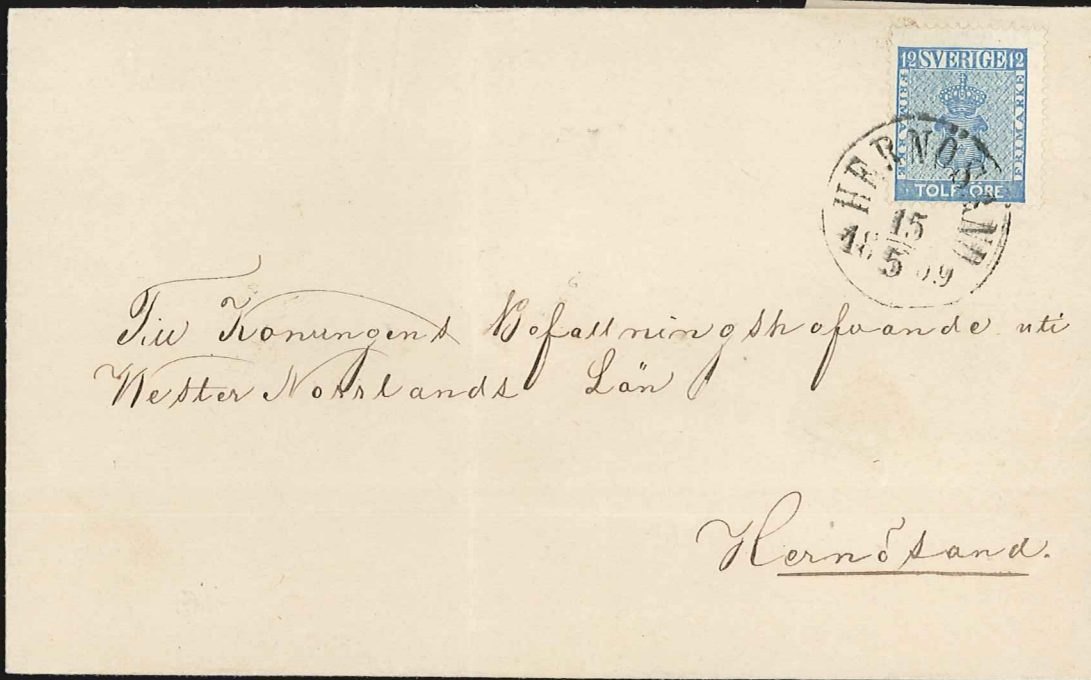 12 SVERIGE 12
FRIMARKE
FRIMARKE
TOLF ÖRE
HERNÖSAND
15
18 5 69
Till Konungens Befallningshafvande uti
Wester Norrlands Län
Hernösand.